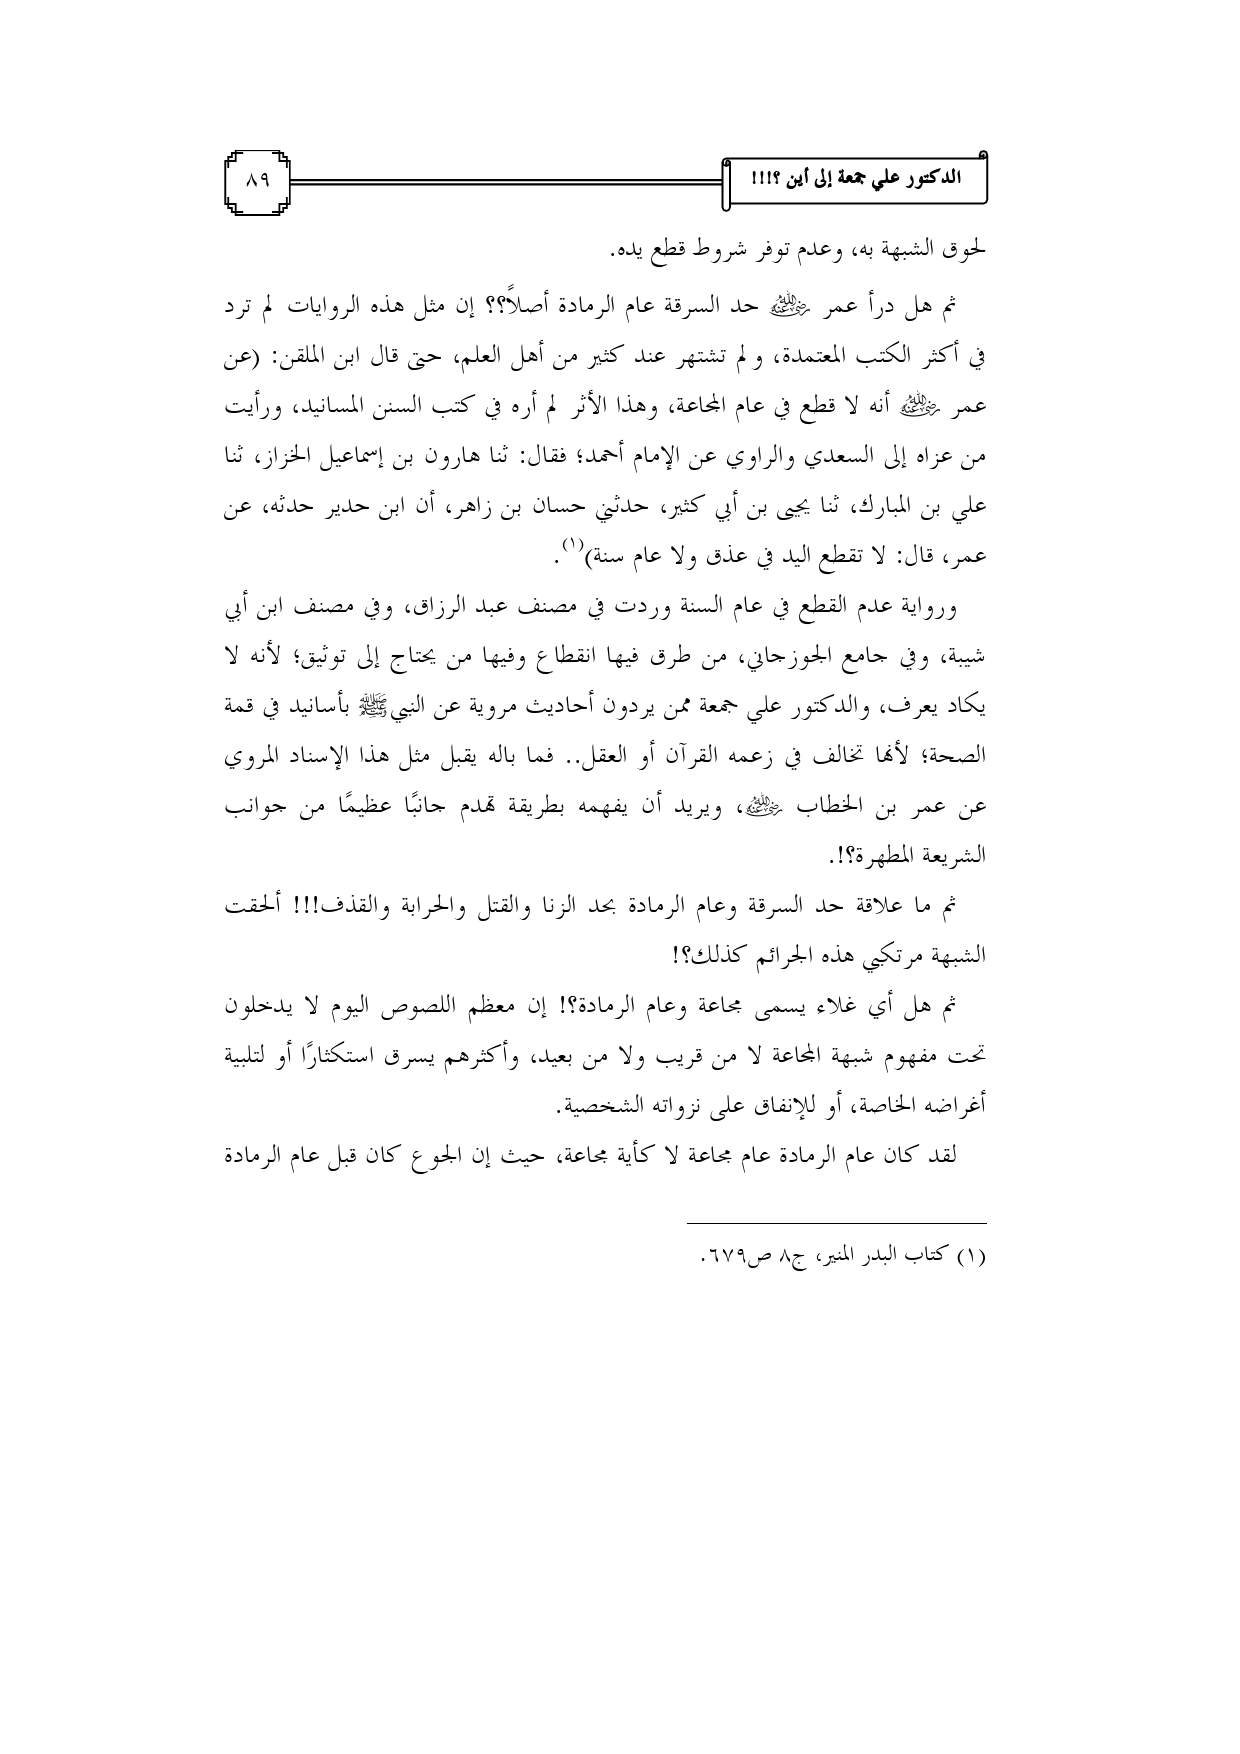 الدكتور علي جمعة إلى أين ؟!!!
٨٩
لحوق الشبهة به، وعدم توفر شروط قطع يده.
ثم هل درأ عمر ﵁ حد السرقة عام الرمادة أصلاً؟؟ إن مثل هذه الروايات لم ترد
في أكثر الكتب المعتمدة، ولم تشتهر عند كثير من أهل العلم، حتى قال ابن الملقن: (عن
عمر ﵁ أنه لا قطع في عام المجاعة، وهذا الأثر لم أره في كتب السنن المسانيد، ورأيت
من عزاه إلى السعدي والراوي عن الإمام أحمد؛ فقال: ثنا هارون بن إسماعيل الخزاز، ثنا
علي بن المبارك، ثنا يحيى بن أبي كثير، حدثني حسان بن زاهر، أن ابن حدير حدثه، عن
عمر، قال: لا تقطع اليد في عذق ولا عام سنة)(١).
ورواية عدم القطع في عام السنة وردت في مصنف عبد الرزاق، وفي مصنف ابن أبي
شيبة، وفي جامع الجوزجاني، من طرق فيها انقطاع وفيها من يحتاج إلى توثيق؛ لأنه لا
يكاد يعرف، والدكتور علي جمعة ممن يردون أحاديث مروية عن النبي ﷺ بأسانيد في قمة
الصحة؛ لأنها تخالف في زعمه القرآن أو العقل.. فما باله يقبل مثل هذا الإسناد المروي
عن عمر بن الخطاب ﵁، ويريد أن يفهمه بطريقة تهدم جانبًا عظيمًا من جوانب
الشريعة المطهرة؟!.
ثم ما علاقة حد السرقة وعام الرمادة بحد الزنا والقتل والحرابة والقذف!!! ألحقت
الشبهة مرتكبي هذه الجرائم كذلك؟!
ثم هل أي غلاء يسمى مجاعة وعام الرمادة؟! إن معظم اللصوص اليوم لا يدخلون
تحت مفهوم شبهة المجاعة لا من قريب ولا من بعيد، وأكثرهم يسرق استكثارًا أو لتلبية
أغراضه الخاصة، أو للإنفاق على نزواته الشخصية.
لقد كان عام الرمادة عام مجاعة لا كأية مجاعة، حيث إن الجوع كان قبل عام الرمادة
(١) كتاب البدر المنير، ج٨ ص٦٧٩.